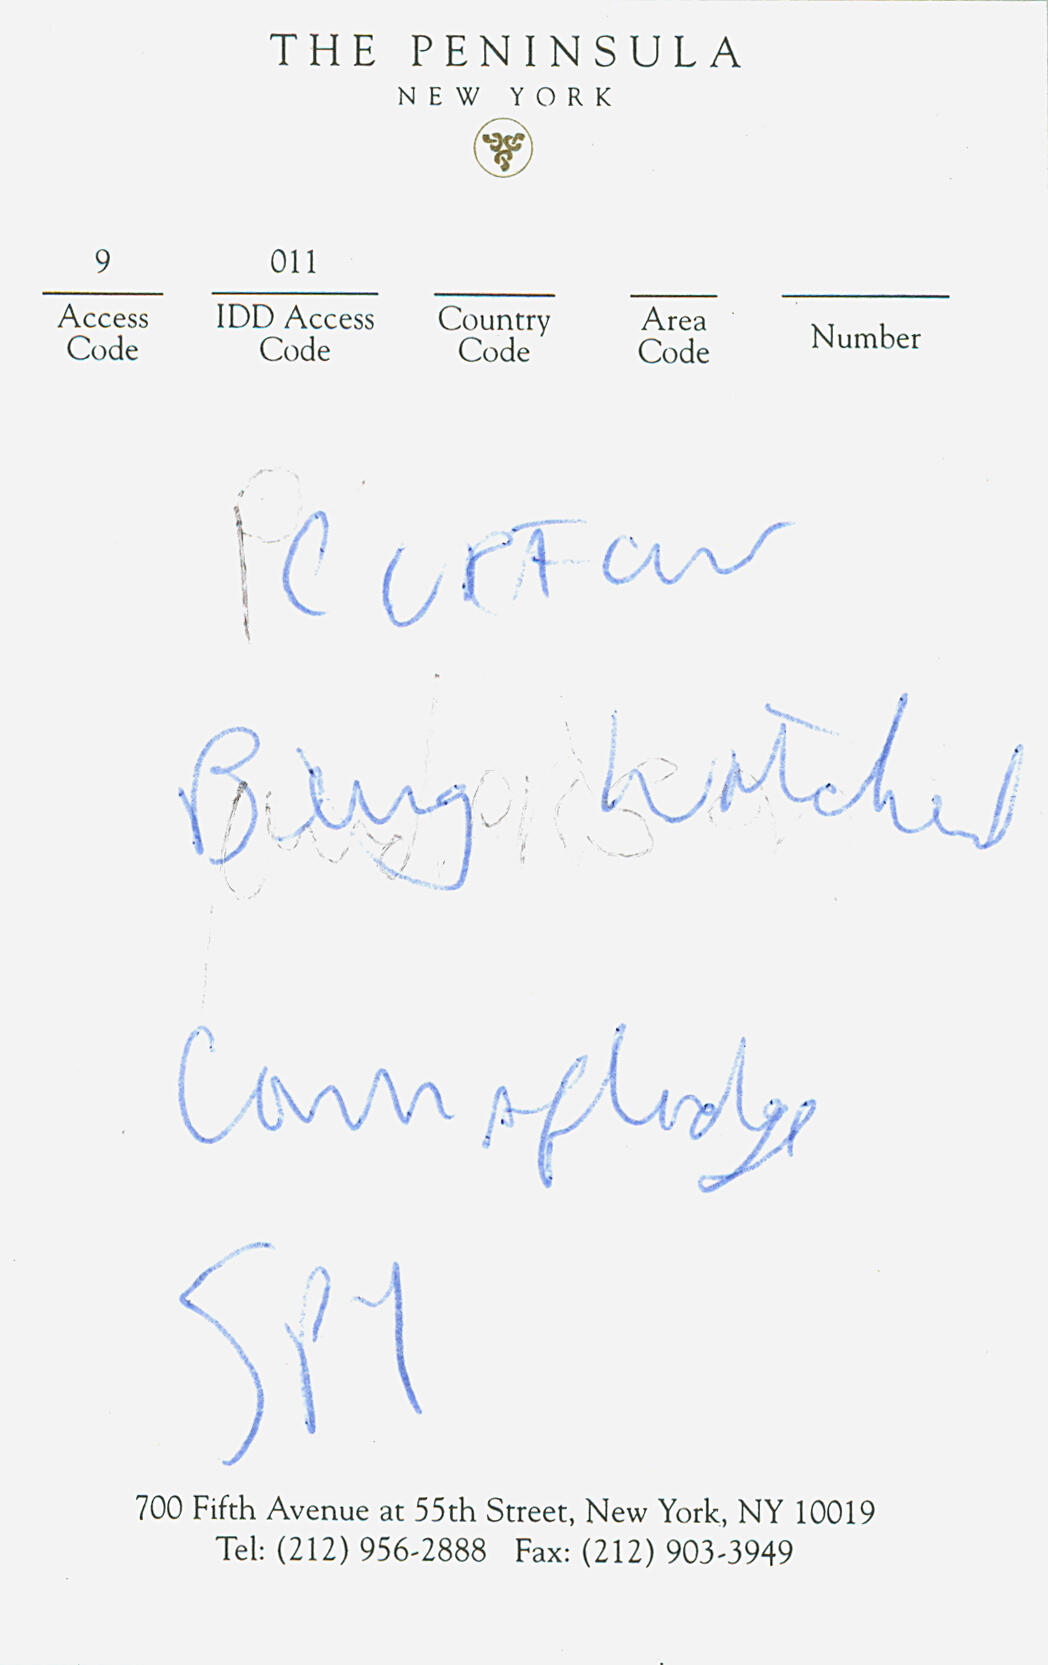 THE PENINSULA
NEW YORK
9 011
Access Code IDD Access Code Country Code Area Code Number
Being Watched
Camaflodge
SPY
700 Fifth Avenue at 55th Street, New York, NY 10019
Tel: (212) 956-2888 Fax: (212) 903-3949